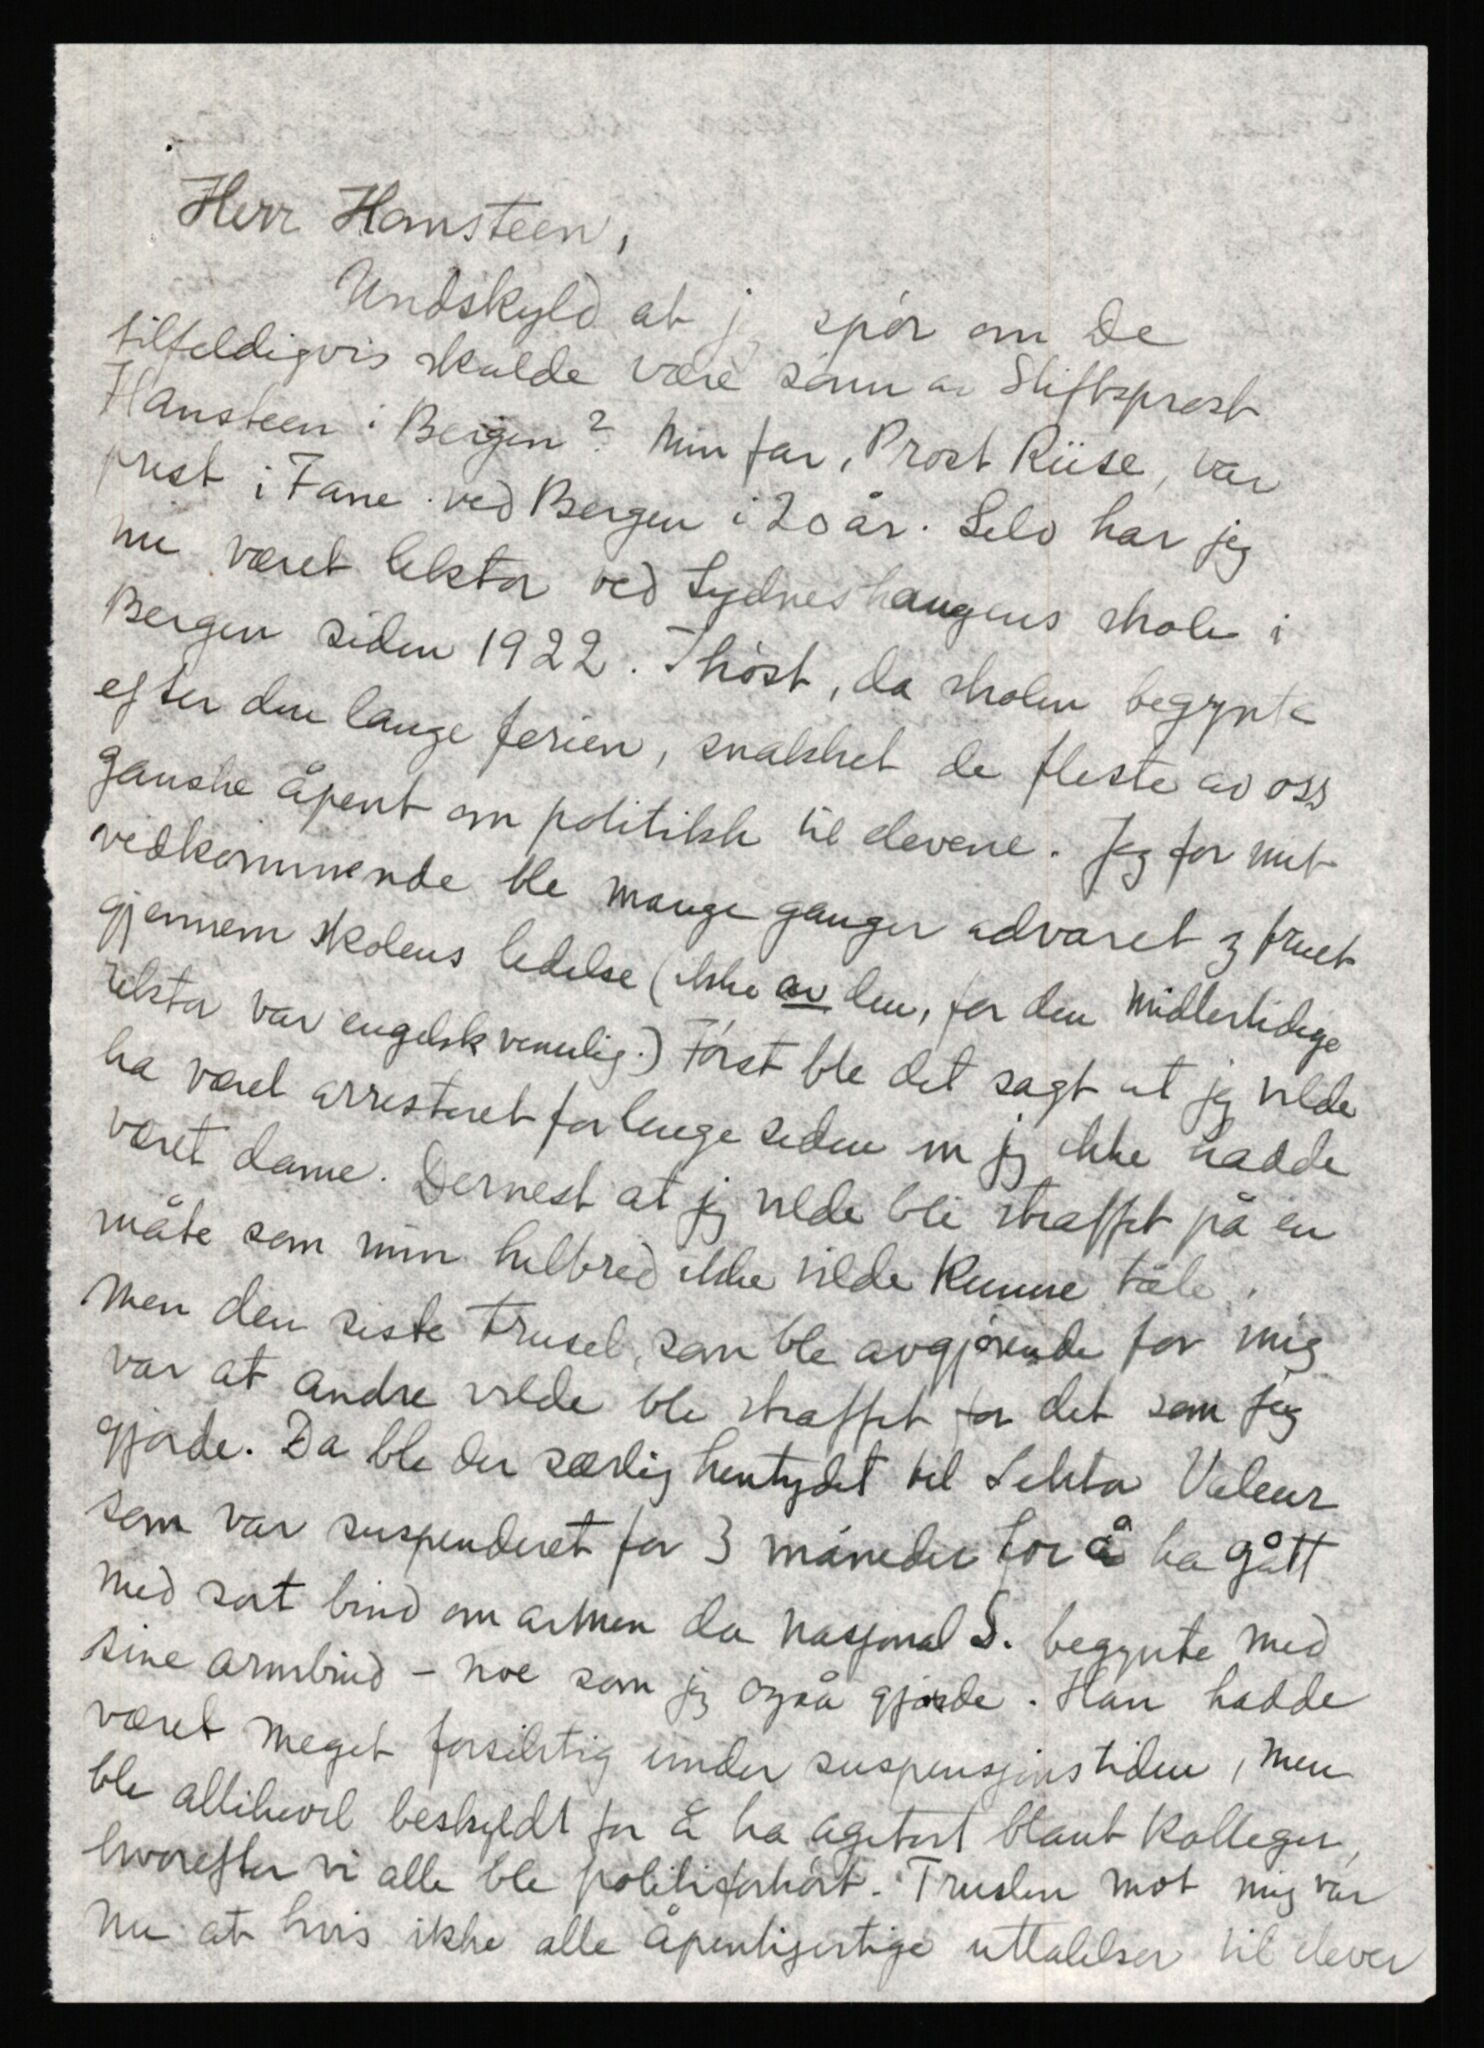 Herr Hansteen,
Undskyld at jeg spör om De
tilfeldigvis skulde være sönn av Stiftsprost
Hansteen i Bergen? Min far, Prost Riise, var
prest i Fane ved Bergen i 20 år. Selv har jeg
nu været lektor ved Sydneshaugens skole i
Bergen siden 1922. I höst, da skolen begynte
efter den lange ferien, snakket de fleste av oss
ganske åpent om politikk til elevene. Jeg for mit
vedkommende ble mange ganger advaret og truet
gjennem skolens ledelse (ikke av den, for den midlertidige
rektor var engelskvennlig.) Först ble det sagt at jeg vilde
ha været arrestert for lenge siden om jeg ikke hadde
været dame. Dernest at jeg vilde bli straffet på en
måte som min helbred ikke vilde kunne tåle.
Men den siste trusel, som ble avgjörende for mig
var at andre vilde bli straffet for det som jeg
gjorde. Da ble der særlig hentydet til Lektor Valeur
som var suspenderet for 3 måneder for å ha gått
med sort bind om armen da Nasjonal S. begynte med
sine armbind – noe som jeg også gjorde. Han hadde
været meget forsiktig under suspensjonstiden, men
ble allikevel beskyldt for å ha agitert blant kolleger,
hvorefter vi alle ble politiforhört. Truslen mot mig var
nu at hvis ikke alle åpenhjertige uttalelser til elever